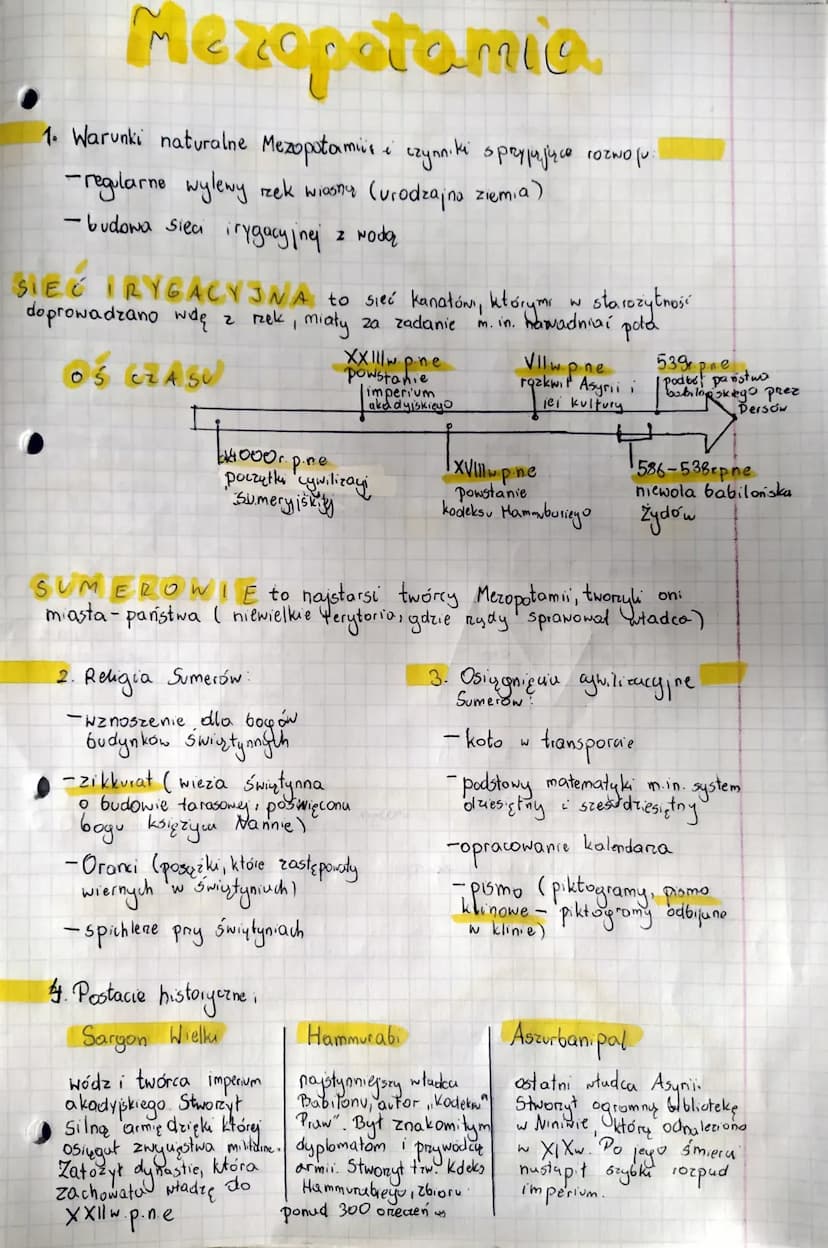 Mezopotamia
1. Warunki naturalne Mezopotamii i czynniki sprzyjające rozwoju:
- regularne wylewy rzek wiosną (urodzajna ziemia)
- budowa sieci irygacyjnej z wodą
SIEĆ IRYGACYJNA to sieć kanałów, którymi w starożytność
doprowadzano wdę z rzek, miały za zadanie m.in. nawadniać pola
OŚ CZASU
XXIII w p.ne
powstanie
imperium
akadyjskiego
VII w p.ne
rozkwit Asyrii i
jej kultury
539r p.ne
podbój państwa
babilońskiego przez
Persów
4000 r. p.ne
początki cywilizacji
sumeryjskiej
XVIII w p.ne
powstanie
kodeksu Hammuburiego
586-538r pne
niewola babilońska
Żydów
SUMEROWIE to najstarsi twórcy Mezopotamii, tworzyli oni
miasta-państwa (niewielkie terytoria, gdzie rządy sprawował władca)
2. Religia Sumerów:
- wznoszenie dla bogów
budynków świątynnych
- zikkurat (wieża świątynna
o budowie tarasowej, poświęcona
bogu księżyca Nannie)
- Oranci (posążki, które zastępowały
wiernych w świątyniach)
- spichlerze przy świątyniach
3. Osiągnięcia cywilizacyjne
Sumerów:
- koło w transporcie
- podstowy matematyki m.in. system
dziesiętny i sześćdziesiętny
- opracowanie kalendarza
- pismo (piktogramy, pismo
klinowe - piktogramy odbijane
w klinie)
4. Postacie historyczne:
Sargon Wielki
wódz i twórca imperium
akadyjskiego. Stworzył
silną armię dzięki której
osiągał zwycięstwa militarne.
Założył dynastie, która
zachowała władzę do
XXII w. p.n.e
Hammurabi
najsłynniejszy władca
Babilonu, autor „Kodeksu
Praw". Był znakomitym
dyplomatom i przywódcą
armii. Stworzył tzw. Kdeks
Hammurabiego, zbioru
ponad 300 orzeczeń
Aszurbanipal
ostatni władca Asyrii.
Stworzył ogromną bibliotekę
w Niniwie, którą odnaleziono
w XIXw. Po jego śmierci
nastąpił szybki rozpad
imperium.